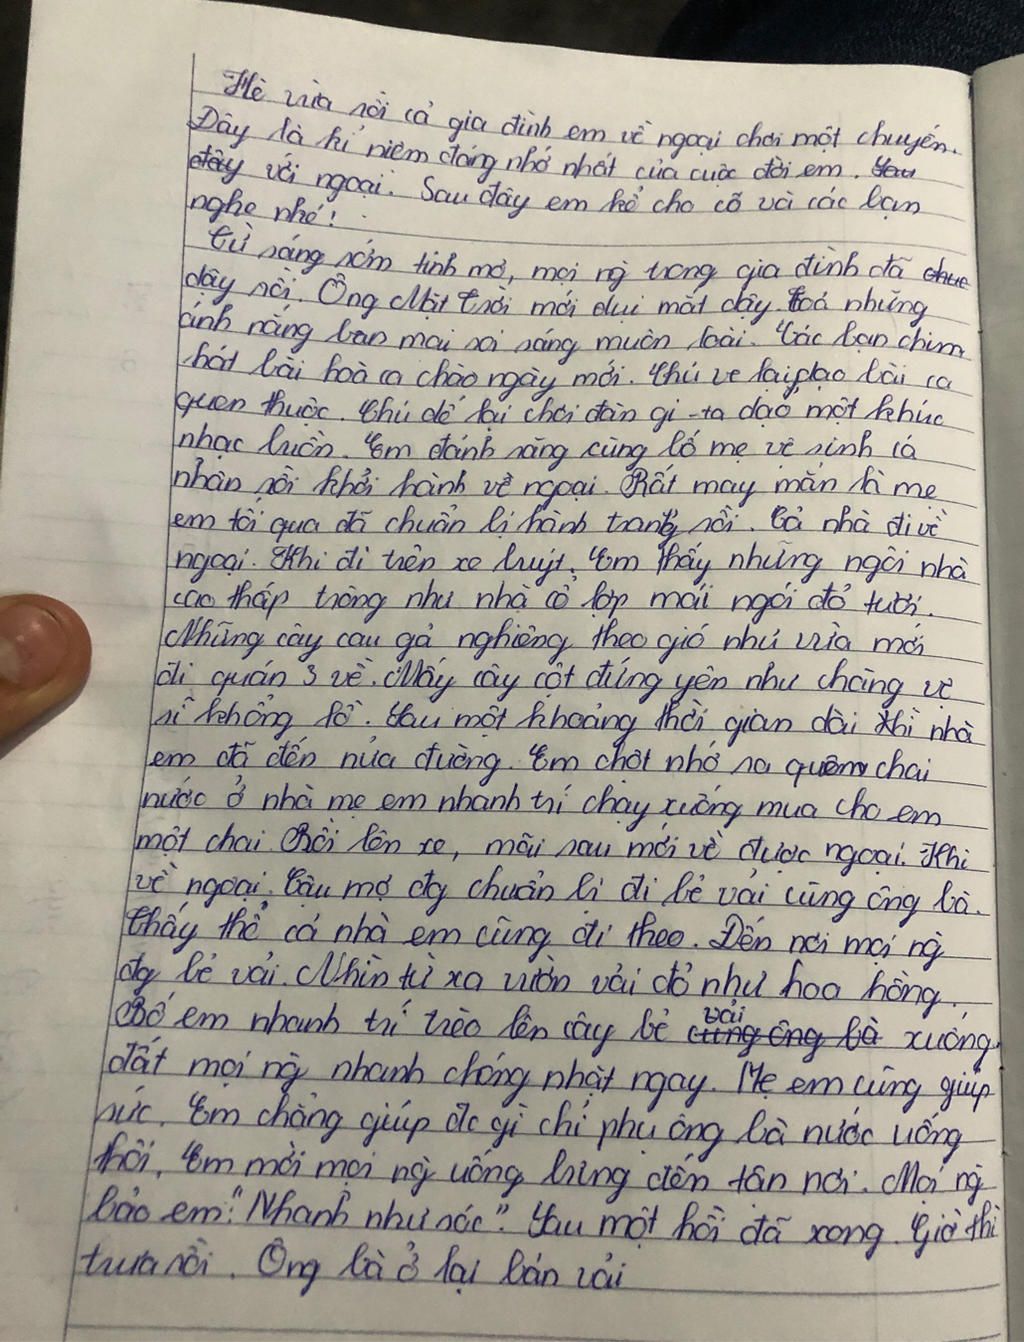 Hè vừa rồi cả gia đình em về ngoại chơi một chuyến.
Đây là kỉ niệm đáng nhớ nhất của cuộc đời em. Sau
đây với ngoại. Sau đây em kể cho cô và các bạn
nghe nhé!
Từ sáng sớm tinh mơ, mọi ng̀ trong gia đình đã
dây rồi. Ông Mặt Trời mới dụi mắt dậy toả những
ánh nắng ban mai soi sáng muôn loài. Các bạn chim
hát bài hoà ca chào ngày mới. Chú ve lại dạo bài ca
quen thuộc. Chú dế lại chơi đàn gi-ta dạo một khúc
nhạc buồn. Em đánh răng cùng bố mẹ vê sinh cá
nhân rồi khởi hành về ngoại. Rất may mắn là mẹ
em tối qua đã chuẩn bị hành trang rồi. Cả nhà đi về
ngoại. Khi đi trên xe buýt. Em thấy những ngôi nhà
cao thấp trông như nhà cổ lợp mái ngói đỏ tươi.
Những cây cau gả nghiêng theo gió như vừa mới
đi quán 3 về. Mấy cây cột đứng yên như chàng vệ
sĩ khổng lồ. Sau một khoảng thời gian dài thì nhà
em đã đến nửa đường. Em chợt nhớ ra quên chai
nước ở nhà mẹ em nhanh trí chạy xuống mua cho em
một chai. Rồi lên xe, mãi sau mới về được ngoại. Khi
về ngoại. Cậu mợ đg chuẩn bị đi bẻ vải cùng ông bà.
Thấy thế cả nhà em cũng đi theo. Đến nơi mọi ng̀
đg bẻ vải. Nhìn từ xa vườn vải đỏ như hoa hồng.
Bố em nhanh trí trèo lên cây bẻ vải cùng ông bà xuống
đất mọi ng̀ nhanh chóng nhặt ngay. Mẹ em cũng giúp
sức. Em chẳng giúp đc gì chỉ phụ ông bà nước uống
thôi. Em mời mọi ng̀ uống bưng đến tận nơi. Mọi ng̀
bảo em: "Nhanh như sóc". Sau một hồi đã xong. Giờ thì
trưa rồi. Ông bà ở lại bán vải